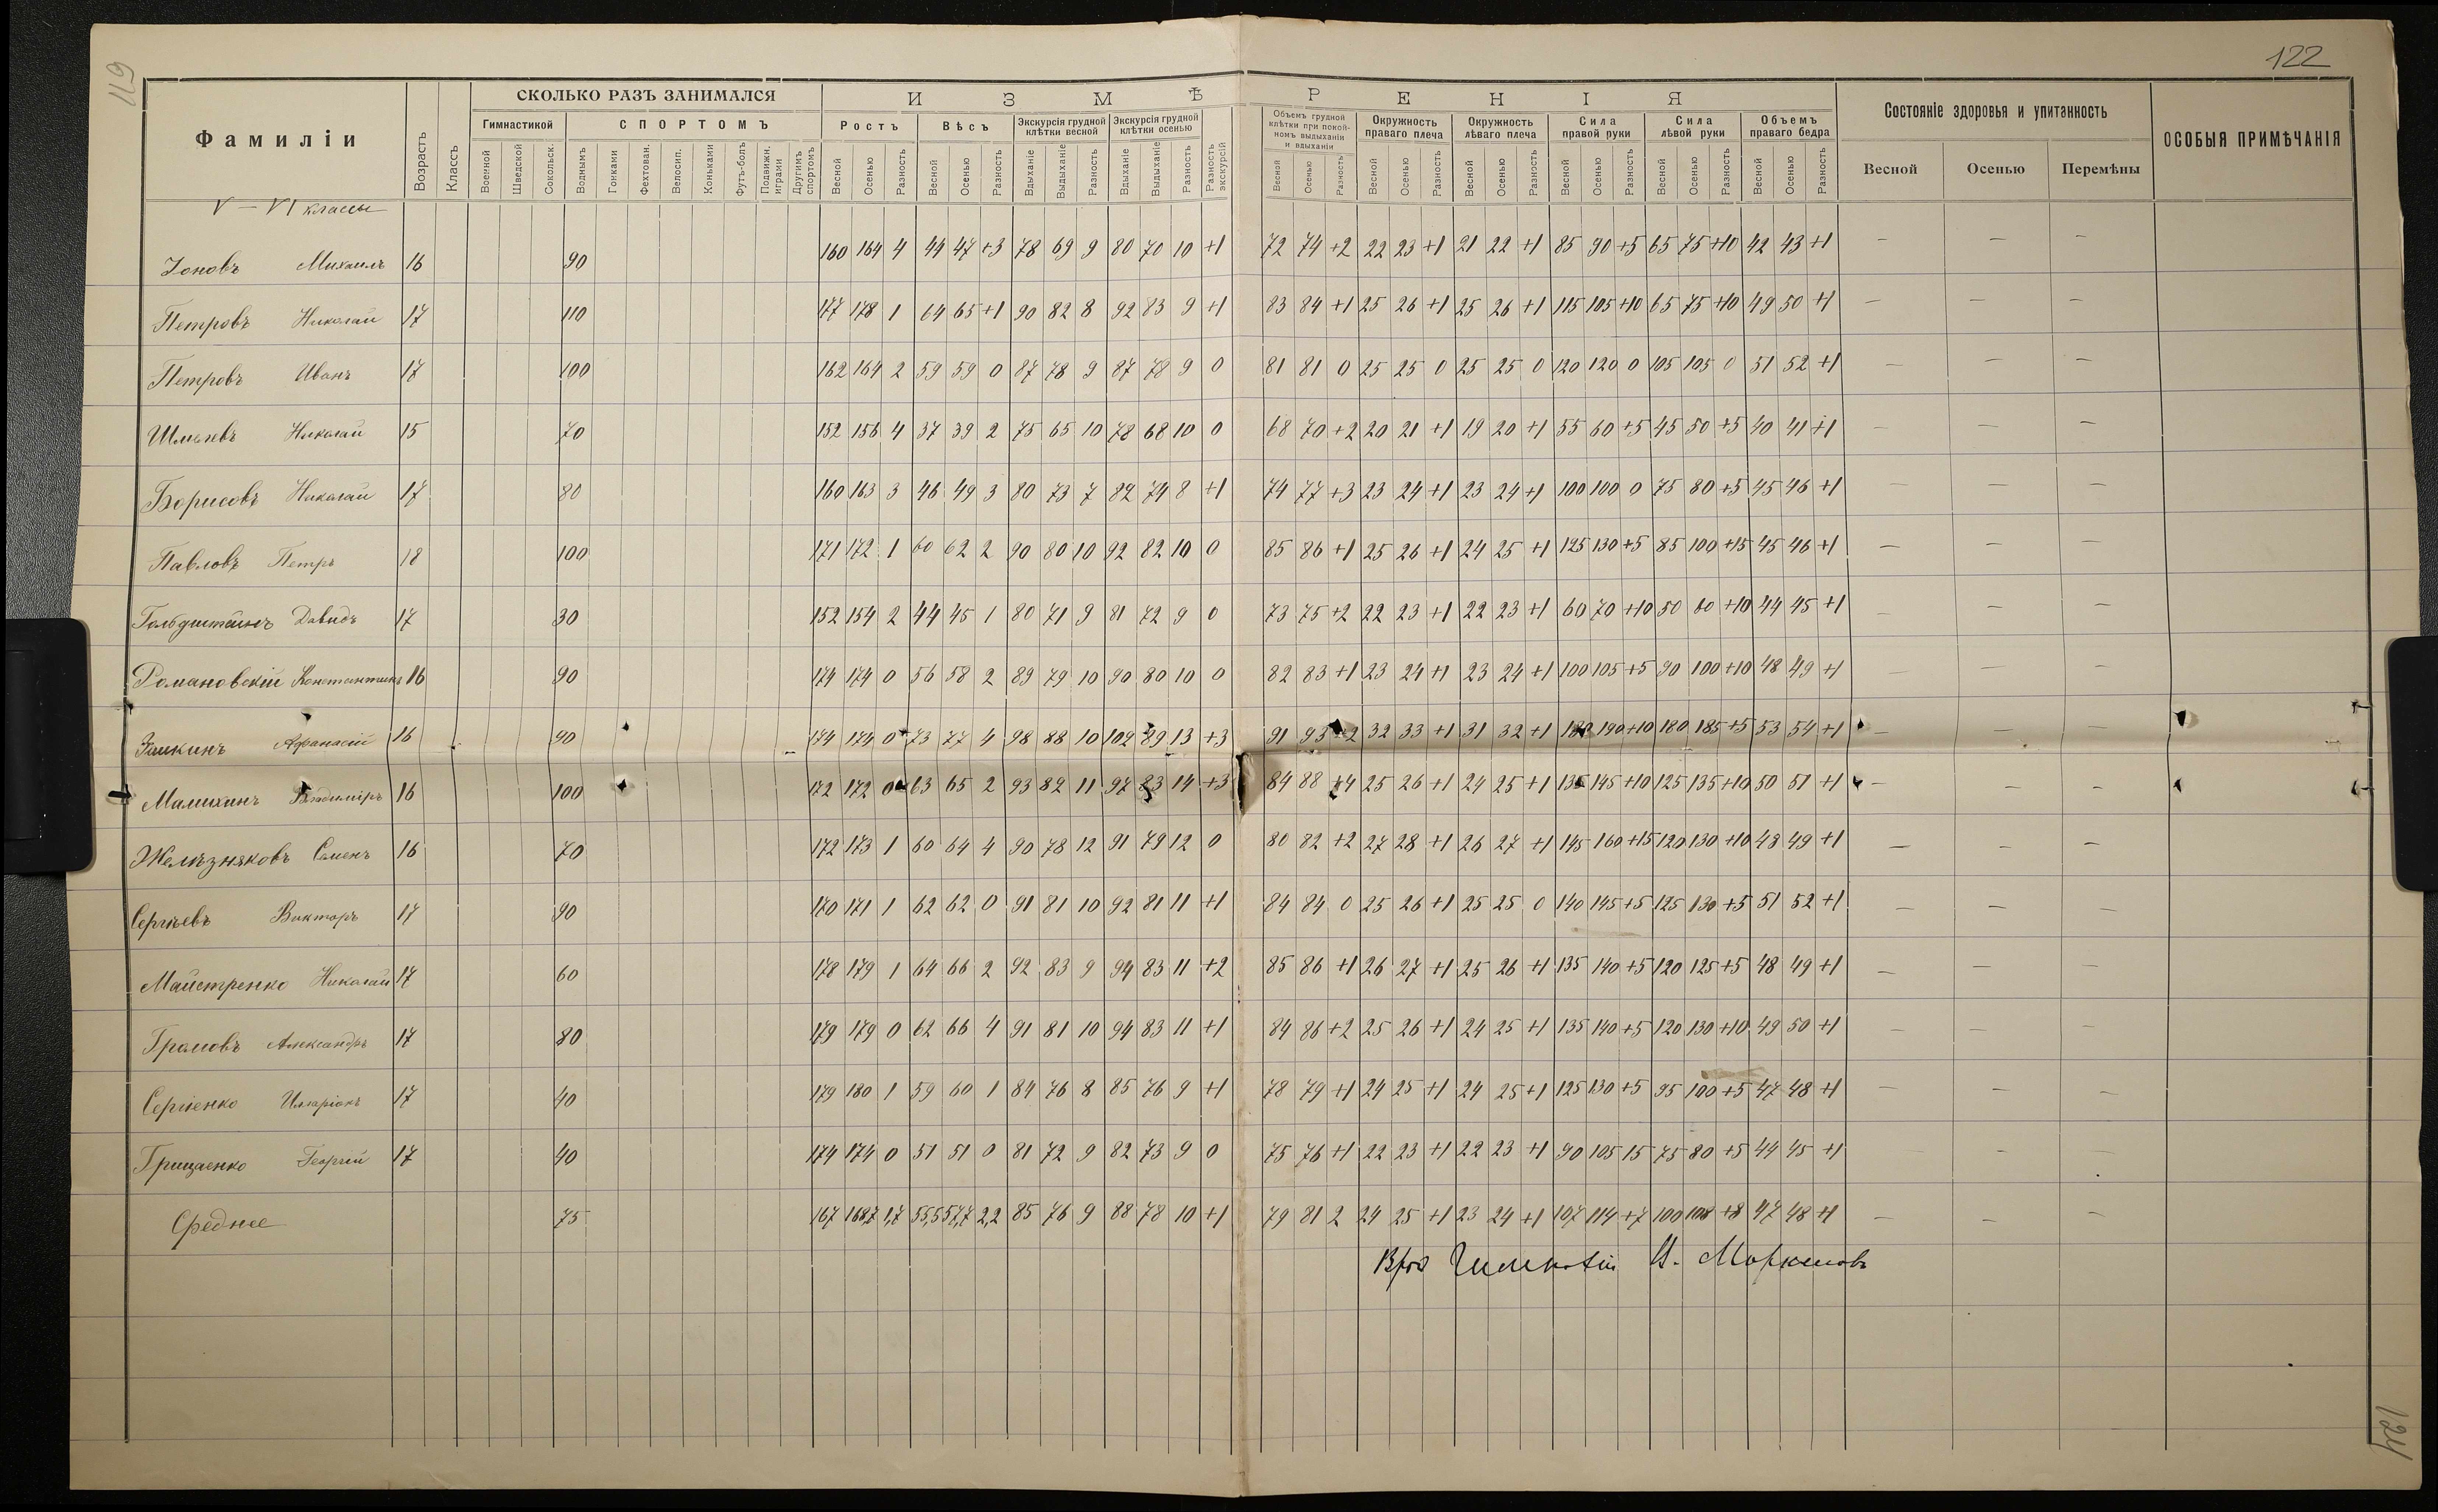 119
122
Фамиліи
Возрастъ
Классъ
СКОЛЬКО РАЗЪ ЗАНИМАЛСЯ
Гимнастикой
Военной
Шведской
Сокольск.
СПОРТОМЪ
Воднымъ
Гонками
Фехтован.
Велосип.
Коньками
Футъ-болъ
Подвижн. играми
Другимъ спортомъ
ИЗМѢРЕНІЯ
Ростъ
Весной
Осенью
Разность
Вѣсъ
Весной
Осенью
Разность
Экскурсія грудной клѣтки весной
Вдыханіе
Выдыханіе
Разность
Экскурсія грудной клѣтки осенью
Вдыханіе
Выдыханіе
Разность
Разность экскурсій
Объемъ грудной клѣтки при покойномъ выдыханіи и вдыханіи
Весной
Осенью
Разность
Окружность праваго плеча
Весной
Осенью
Разность
Окружность лѣваго плеча
Весной
Осенью
Разность
Сила правой руки
Весной
Осенью
Разность
Сила лѣвой руки
Весной
Осенью
Разность
Объемъ праваго бедра
Весной
Осенью
Разность
Состояніе здоровья и упитанность
Весной
Осенью
Перемѣны
ОСОБЫЯ ПРИМѢЧАНІЯ
V — VI классы
Іоновъ Михаилъ 16 90 160 164 4 44 47 +3 78 69 9 80 70 10 +1 72 74 +2 22 23 +1 21 22 +1 85 90 +5 65 75 +10 42 43 +1 — — —
Петровъ Николай 17 110 177 178 1 64 65 +1 90 82 8 92 83 9 +1 83 84 +1 25 26 +1 25 26 +1 115 105 +10 65 75 +10 49 50 +1 — — —
Петровъ Иванъ 17 100 162 164 2 59 59 0 87 78 9 87 78 9 0 81 81 0 25 25 0 25 25 0 120 120 0 105 105 0 51 52 +1 — — —
Николай 15 70 152 156 4 37 39 2 75 65 10 78 68 10 0 68 70 +2 20 21 +1 19 20 +1 55 60 +5 45 50 +5 40 41 +1 — — —
Борисовъ Николай 17 80 160 163 3 46 49 3 80 73 7 82 74 8 +1 74 77 +3 23 24 +1 23 24 +1 100 100 0 75 80 +5 45 46 +1 — — —
Павловъ Петръ 18 100 171 172 1 60 62 2 90 80 10 92 82 10 0 85 86 +1 25 26 +1 24 25 +1 125 130 +5 85 100 +15 45 46 +1 — — —
Гольдштейнъ Давидъ 17 30 152 154 2 44 45 1 80 71 9 81 72 9 0 73 75 +2 22 23 +1 22 23 +1 60 70 +10 50 60 +10 44 45 +1 — — —
Романовскій Константинъ 16 90 174 174 0 56 58 2 89 79 10 90 80 10 0 82 83 +1 23 24 +1 23 24 +1 100 105 +5 90 100 +10 48 49 +1 — — —
Афанасій 16 90 174 174 0 73 77 4 98 88 10 102 89 13 +3 91 93 +2 32 33 +1 31 32 +1 180 190 +10 180 185 +5 53 54 +1 — — —
Мамихинъ Владиміръ 16 100 172 172 0 63 65 2 93 82 11 97 83 14 +3 84 88 +4 25 26 +1 24 25 +1 135 145 +10 125 135 +10 50 51 +1 — — —
Желѣзняковъ Семенъ 16 70 172 173 1 60 64 4 90 78 12 91 79 12 0 80 82 +2 27 28 +1 26 27 +1 145 160 +15 120 130 +10 48 49 +1 — — —
Сергѣевъ Викторъ 17 90 170 171 1 62 62 0 91 81 10 92 81 11 +1 84 84 0 25 26 +1 25 25 0 140 145 +5 125 130 +5 51 52 +1 — — —
Майстренко Николай 17 60 178 179 1 64 66 2 92 83 9 94 83 11 +2 85 86 +1 26 27 +1 25 26 +1 135 140 +5 120 125 +5 48 49 +1 — — —
Громовъ Александръ 17 80 179 179 0 62 66 4 91 81 10 94 83 11 +1 84 86 +2 25 26 +1 24 25 +1 135 140 +5 120 130 +10 49 50 +1 — — —
Сергіенко Иларіонъ 17 40 179 180 1 59 60 1 84 76 8 85 76 9 +1 78 79 +1 24 25 +1 24 25 +1 125 130 +5 95 100 +5 47 48 +1 — — —
Грицаенко Георгій 17 40 174 174 0 51 51 0 81 72 9 82 73 9 0 75 76 +1 22 23 +1 22 23 +1 90 105 15 75 80 +5 44 45 +1 — — —
Среднее 75 167 168,7 1,7 55,5 57,7 2,2 85 76 9 88 78 10 +1 79 81 2 24 25 +1 23 24 +1 107 114 +7 100 108 +8 47 48 +1 — — —
124